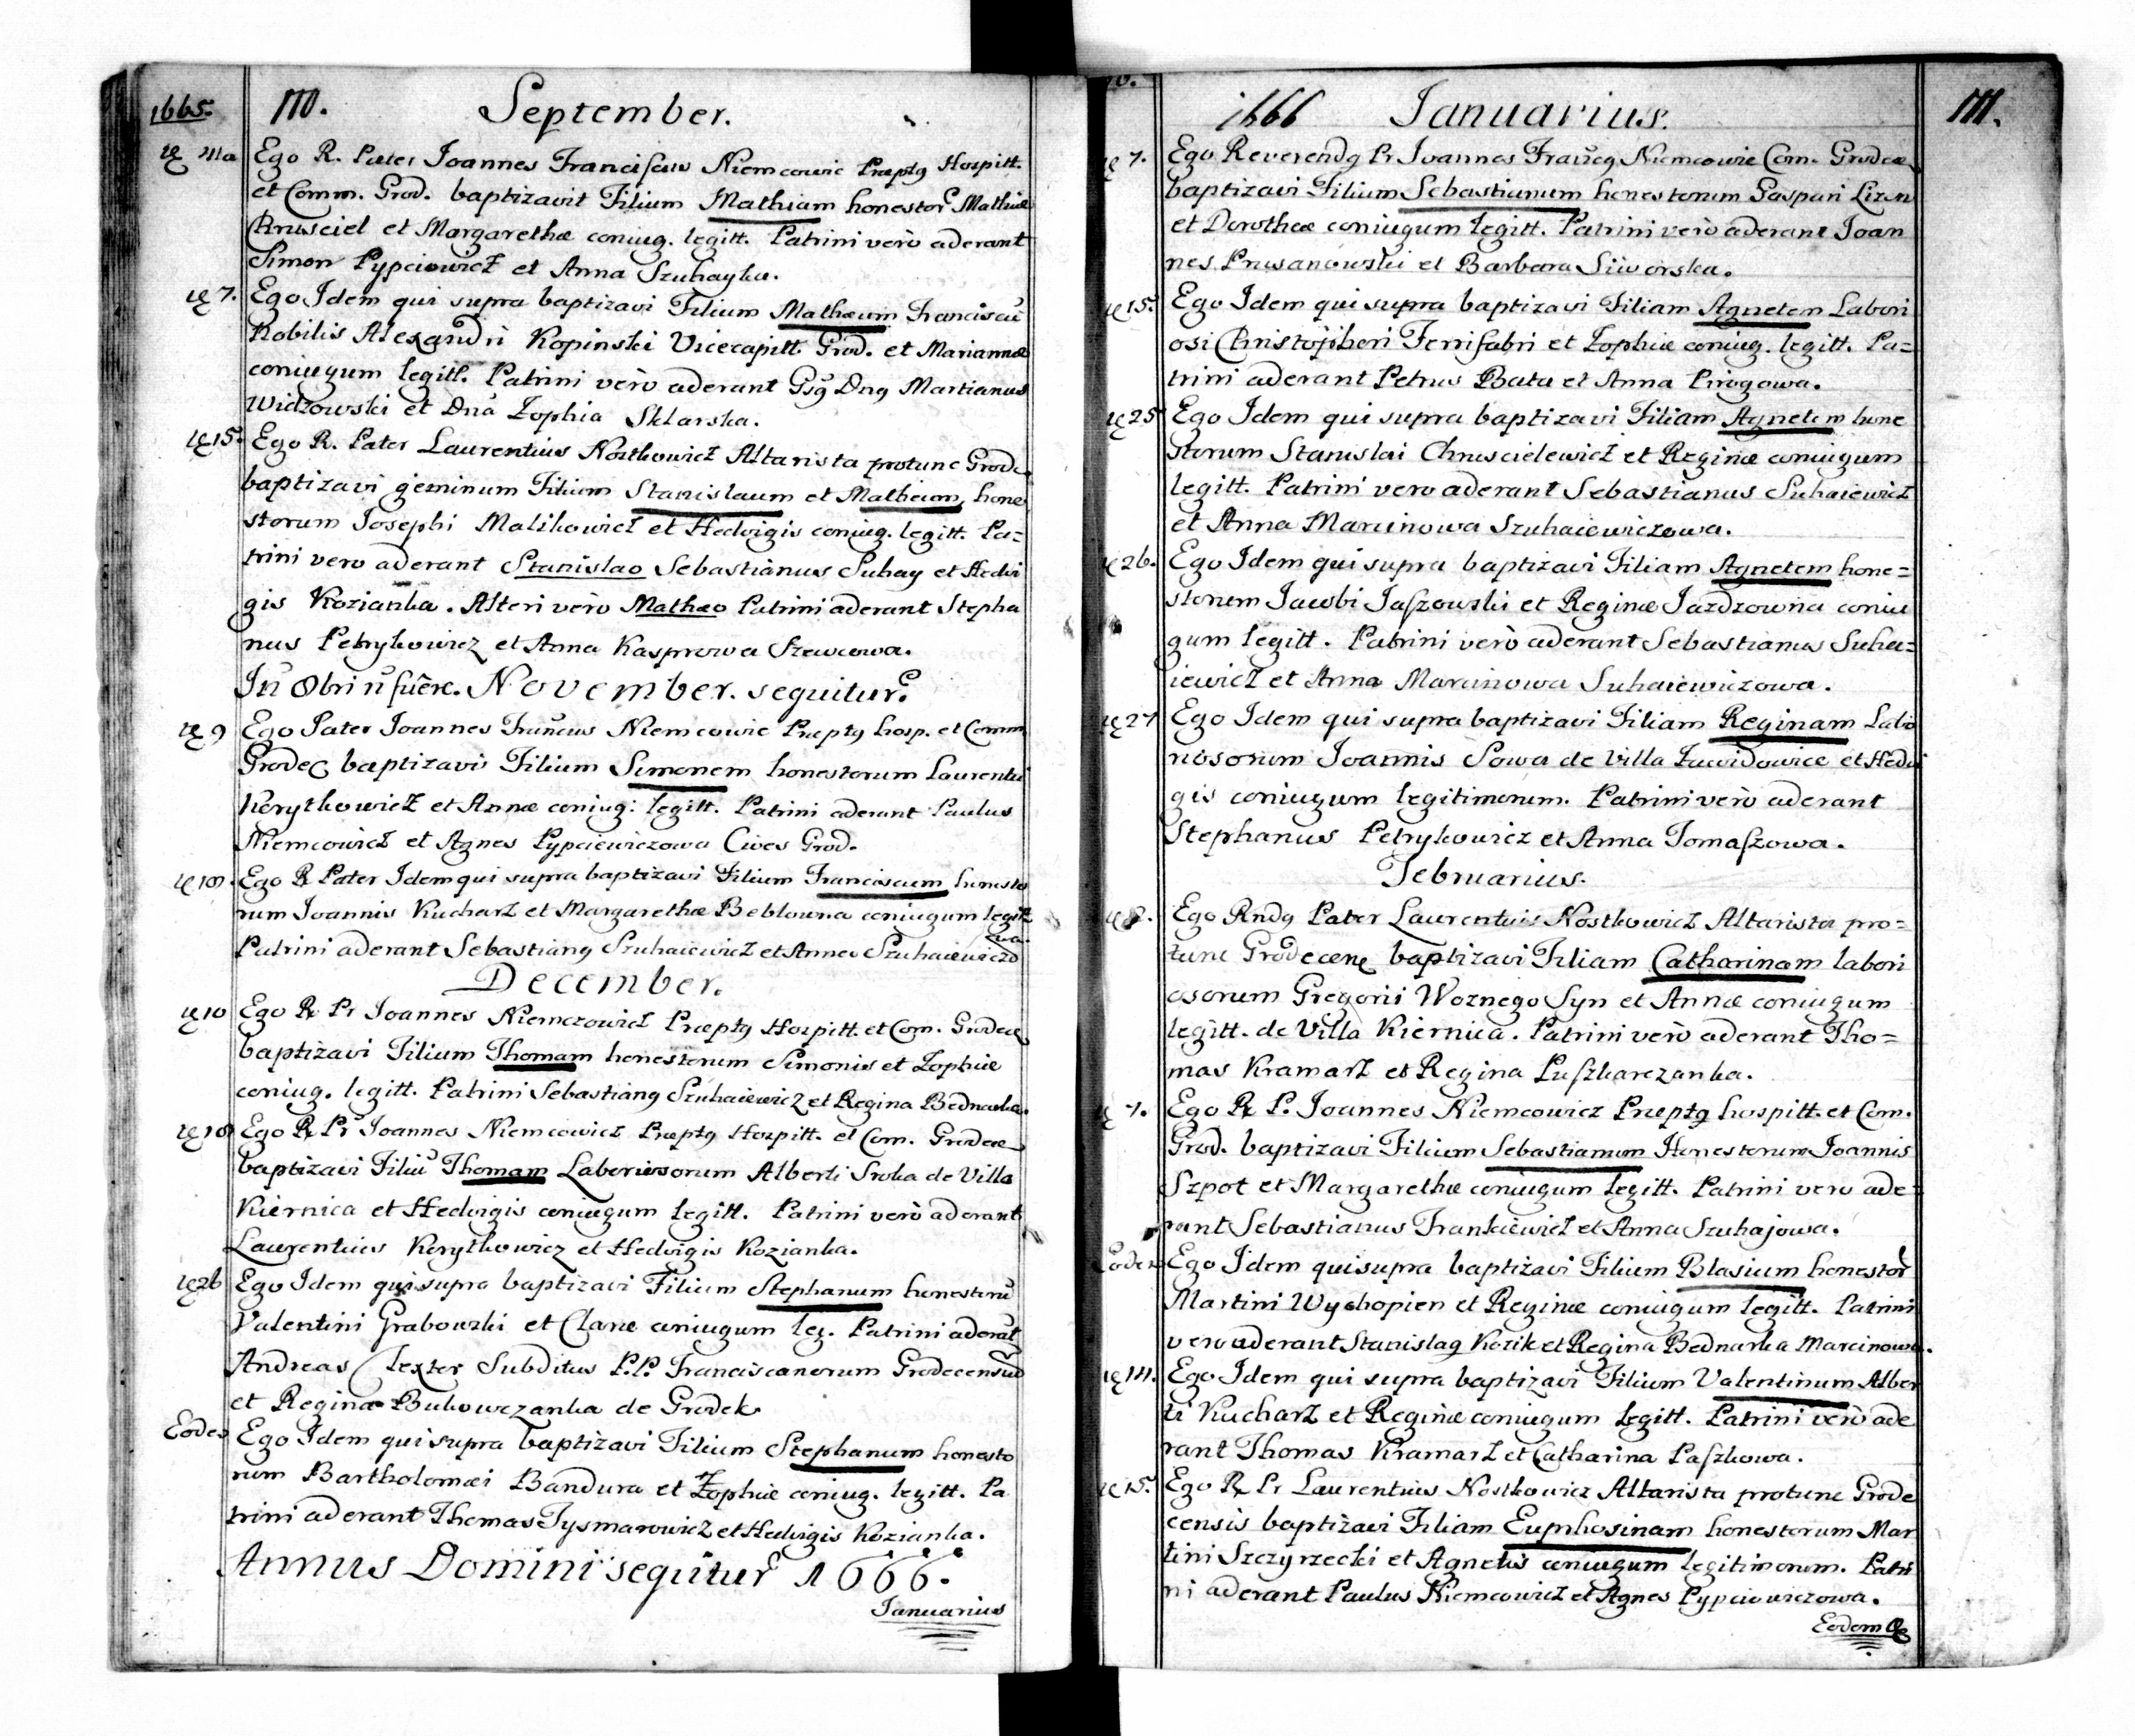 1665. 110. September.
Ego R. Pater Joannes Franciscus Niemcowic Præptg Hospitt.
et Comm. Grod. baptizavit Filium Mathiam honestor Mathiæ
Chrusciel et Margarethæ coniug. legitt. Patrini verò aderant
Simon Pypciowicz et Anna Szuhayka.
7. Ego Idem qui supra baptizavi Filium Mathæum Franciscū
Nobilis Alexandri Kopinski Vicecapitt. Grod. et Mariannæ
coniugum legitt. Patrini verò aderant Gsg Dng Martianus
Widzowski et Dnā Zophia Sklarska.
15. Ego R. Pater Laurentius Nostkowicz Altarista protunc Grode
baptizavi geminum Filium Stanislaum et Matheum, hone
storum Josephi Malikowicz et Hedvigis coniug. legitt. Pa=
trini vero aderant Stanislao Sebastianus Suhay et Hedvi
gis Kozianka. Alteri verò Mathæo Patrini aderant Stepha
nus Petrykowicz et Anna Kasprowa Szewcowa.
In Obri n̄ fuêre. November. sequitur.
9 Ego Pater Joannes Francus Niemcowic Præptg hosp. et Comm
Grodec baptizavi Filium Simonem honestorum Laurentii
Korytkowicz et Annæ coniug: legitt. Patrini aderant Paulus
Niemcowicz et Agnes Pypciewiczowa Cives Grod.
Ego R Pater Idem qui supra baptizavi Filium Franciscum honesto
rum Joannis Kucharz et Margarethæ Beblowna coniugum legitt
Patrini aderant Sebastiang Szuhaiewicz et Anna Szuhaiewiczo
wa.
December.
10 Ego R Pr Joannes Niemczowicz Præptg Hospitt. et Com. Grodec
baptizavi Filium Thomam honestorum Simonis et Zophiæ
coniug. legitt. Patrini Sebastiang Szuhaiewicz et Regina Bednarka.
Ego R Pr Joannes Niemcowicz Præptg Hospitt. et Com. Grodec
baptizavi Filiū Thomam Laboriosorum Alberti Sroka de Villa
Kiernica et Hedvigis coniugum legitt. Patrini verò aderant
Laurentius Korytkowicz et Hedvigis Kozianka.
26 Ego Idem qui supra baptizavi Filium Stephanum honestorū
Valentini Grabowski et Claræ coniugum leg. Patrini aderāt
Andreas Clexter Subditus P.P. Franciscanorum Grodecensiū
et Regina Bukowczanka de Grodek
Eodem Ego Idem qui supra baptizavi Filium Stephanum honesto
rum Bartholomæi Bandura et Zophiæ coniug. legitt. Pa
trini aderant Thomas Tysmarowicz et Hedvigis Kozianka.
Annus Domini sequitur 1666.
Januarius
1666 Ianuarius. 111.
7. Ego Reverendg Pr Joannes Francg Niemcowic Com. Grodec
baptizavi Filium Sebastianum honestorum Gaspari Lizen
et Dorotheæ coniugum legitt. Patrini verò aderant Joan
nes Prusanowski et Barbara Siworska.
15. Ego Idem qui supra baptizavi Filiam Agnetem Labori
osi Christophori Ferrifabri et Zophiæ coniug. legitt. Pa=
trini aderant Petrus Bata et Anna Pirogowa.
25 Ego Idem qui supra baptizavi Filiam Agnetem hone
storum Stanislai Chruscielewicz et Reginæ coniugum
legitt. Patrini vero aderant Sebastianus Suhaiewicz
et Anna Marcinowa Szuhaiewiczowa.
26. Ego Idem qui supra baptizavi Filiam Agnetem hone=
storum Jacobi Jaszowski et Reginæ Jazdzowna coniu
gum legitt. Patrini verò aderant Sebastianus Suha=
iewicz et Anna Marcinowa Suhaiewiczowa.
27 Ego Idem qui supra baptizavi Filiam Reginam Labo
riosorum Joannis Sowa de Villa Zawidowice et Hedvi
gis coniugum legitimorum. Patrini verò aderant
Stephanus Petrykowicz et Anna Tomaszowa.
Februarius.
Ego Rndg Pater Laurentius Nostkowicz Altarista pro=
tunc Grodecens baptizavi Filiam Catharinam labori
osorum Gregorii Woznego Syn et Annæ coniugum
legitt. de Villa Kiernica. Patrini verò aderant Tho=
mas Kramarz et Regina Puszkarczanka.
7. Ego R P. Joannes Niemcowicz Præptg hospitt. et Com.
Grod. baptizavi Filium Sebastianum Honestorum Joannis
Szpot et Margarethæ coniugum legitt. Patrini vero ade=
rant Sebastianus Frankiewicz et Anna Szuhajowa.
Eodem Ego Idem qui supra baptizavi Filium Blasium honestor
Martini Wychopien et Reginæ coniugum legitt. Patrini
vero aderant Stanislag Kozik et Regina Bednarka Marcinowa.
14. Ego Idem qui supra baptizavi Filium Valentinum Alber
ti Kucharz et Reginæ coniugum legitt. Patrini verò ade
rant Thomas Kramarz et Catharina Paszkowa.
15. Ego R Pr Laurentius Nostkowicz Altarista protunc Grode
censis baptizavi Filiam Euphosinam honestorum Mar
tini Szczyrzecki et Agnetis coniugum legitimorum. Patri
ni aderant Paulus Niemcowicz et Agnes Pypciowiczowa.
Eodem